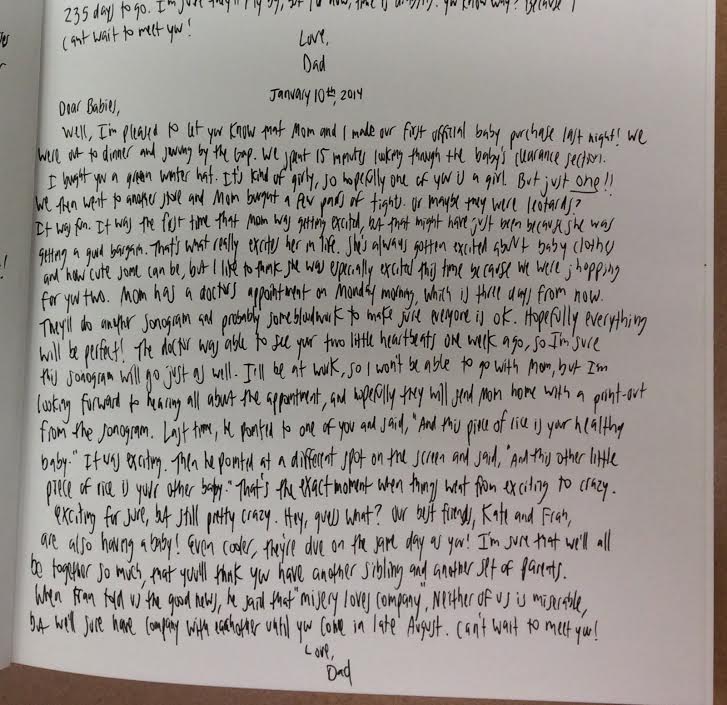 235 days to go. I'm sure they'll fly by, but for now, time is dragging. You know why? Because I
can't wait to meet you!
Love,
Dad
January 10th, 2014
Dear Babies,
Well, I'm pleased to let you know that Mom and I made our first official baby purchase last night! We
were out to dinner and swung by the Gap. We spent 15 minutes looking through the baby's clearance section.
I bought you a green winter hat. It's kind of girly, so hopefully one of you is a girl. But just one!!
We then went to another store and Mom bought a few pairs of tights. Or maybe they were leotards?
It was fun. It was the first time that Mom was getting excited, but that might have just been because she was
getting a good bargain. That's what really excites her in life. She's always gotten excited about baby clothes
and how cute some can be, but I like to think she was especially excited this time because we were shopping
for you two. Mom has a doctors appointment on Monday morning, which is three days from now.
They'll do another sonogram and probably some bloodwork to make sure everyone is OK. Hopefully everything
will be perfect! The doctor was able to see your two little heartbeats one week ago, so I'm sure
this sonogram will go just as well. I'll be at work, so I won't be able to go with Mom, but I'm
looking forward to hearing all about the appointment, and hopefully they will send Mom home with a print-out
from the sonogram. Last time, he pointed to one of you and said, "And this piece of rice is your healthy
baby." It was exciting. Then he pointed at a different spot on the screen and said, "And this other little
piece of rice is your other baby." That's the exact moment when things went from exciting to crazy.
Exciting for sure, but still pretty crazy. Hey, guess what? Our best friends, Kate and Fran,
are also having a baby! Even cooler, they're due on the same day as you! I'm sure that we'll all
be together so much, that you'll think you have another sibling and another set of parents.
When Fran told us the good news, he said that "misery loves company". Neither of us is miserable,
but we'll sure have company with eachother until you come in late August. Can't wait to meet you!
Love,
Dad